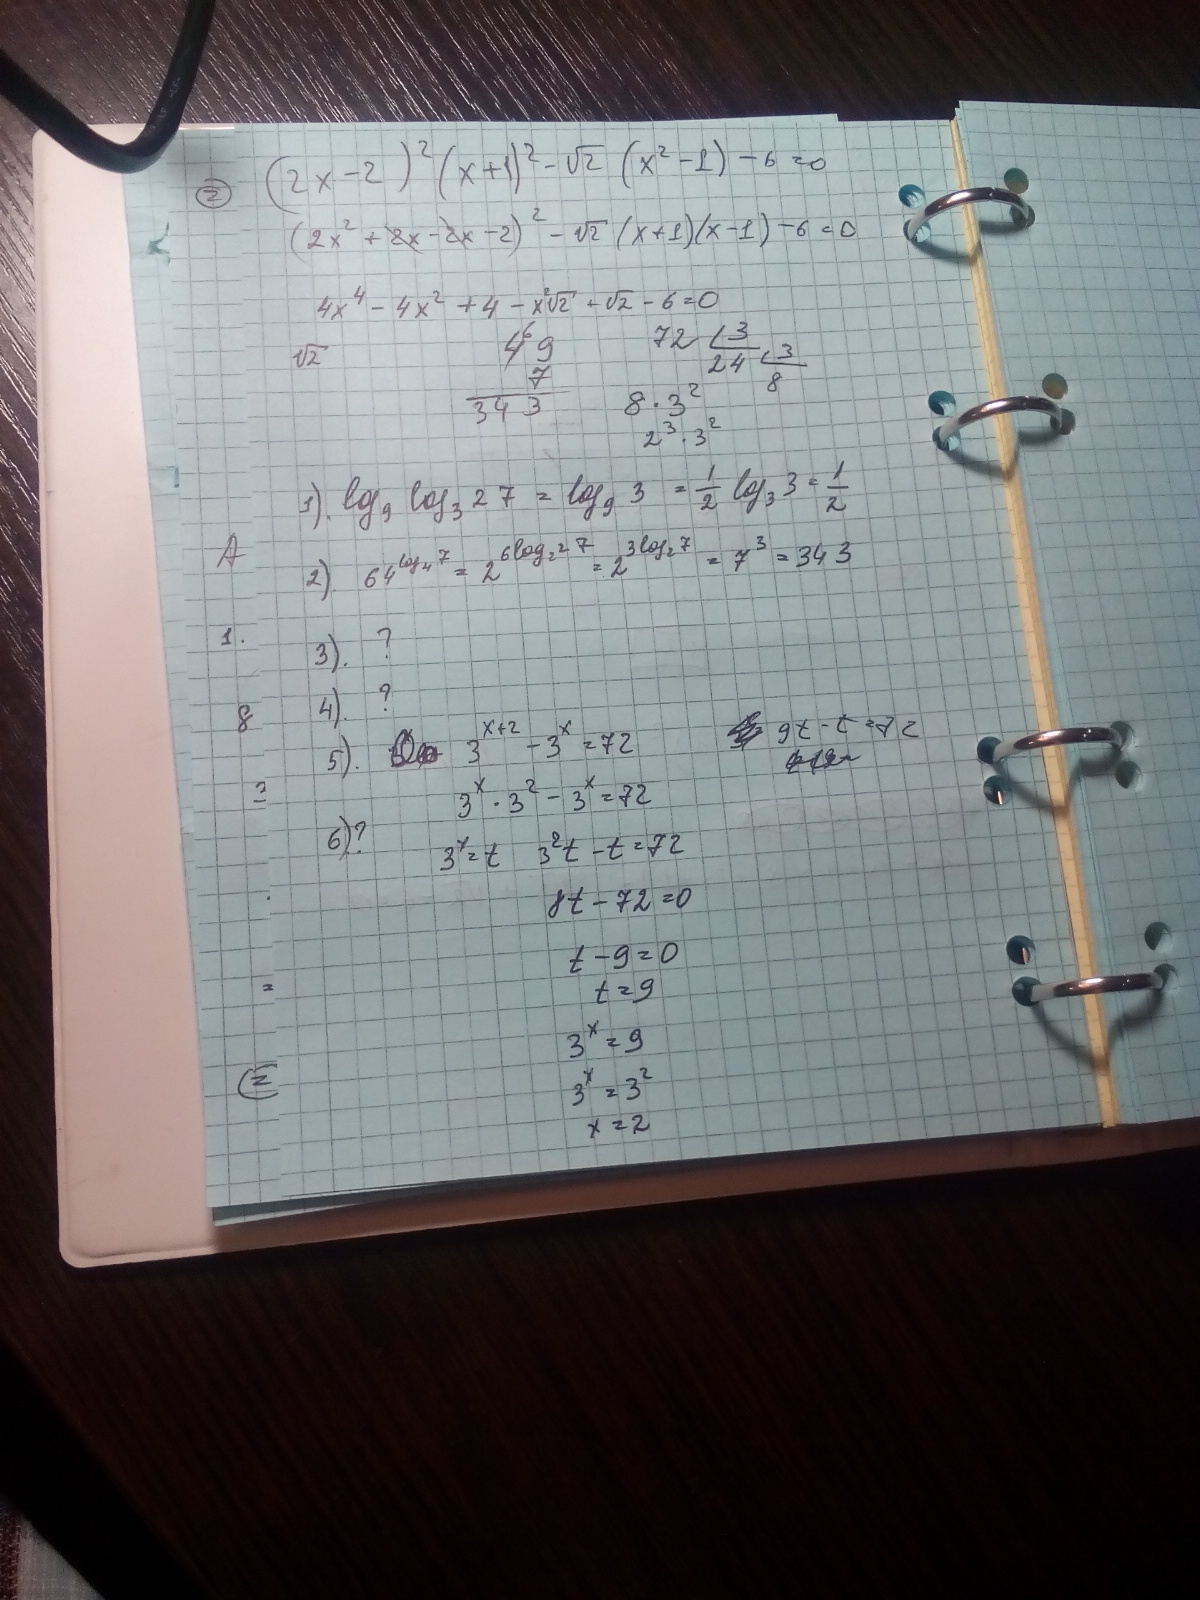 ② (2x-2)²(x+1)²-√2 (x²-1)-6=0
(2x²+2x-2x-2)²-√2(x+1)(x-1)-6=0
4x⁴-4x²+4-x²√2+√2-6=0
√2
49
7
343
72 3
24 3
8
8·3²
2³·3²
1). log₉ log₃ 27 = log₉ 3 = 1/2 log₃ 3 = 1/2
A
2). 64^(log₄7) = 2^(6log_(2²)7) = 2^(3log₂7) = 7³ = 343
1.
3). ?
8
4). ?
5). 3^(x+2) - 3^x = 72
9t-t=72
3^x · 3² - 3^x = 72
6)?
3^x=t 3²t-t=72
8t-72=0
t-9=0
=
t=9
3^x=9
②
3^x=3²
x=2